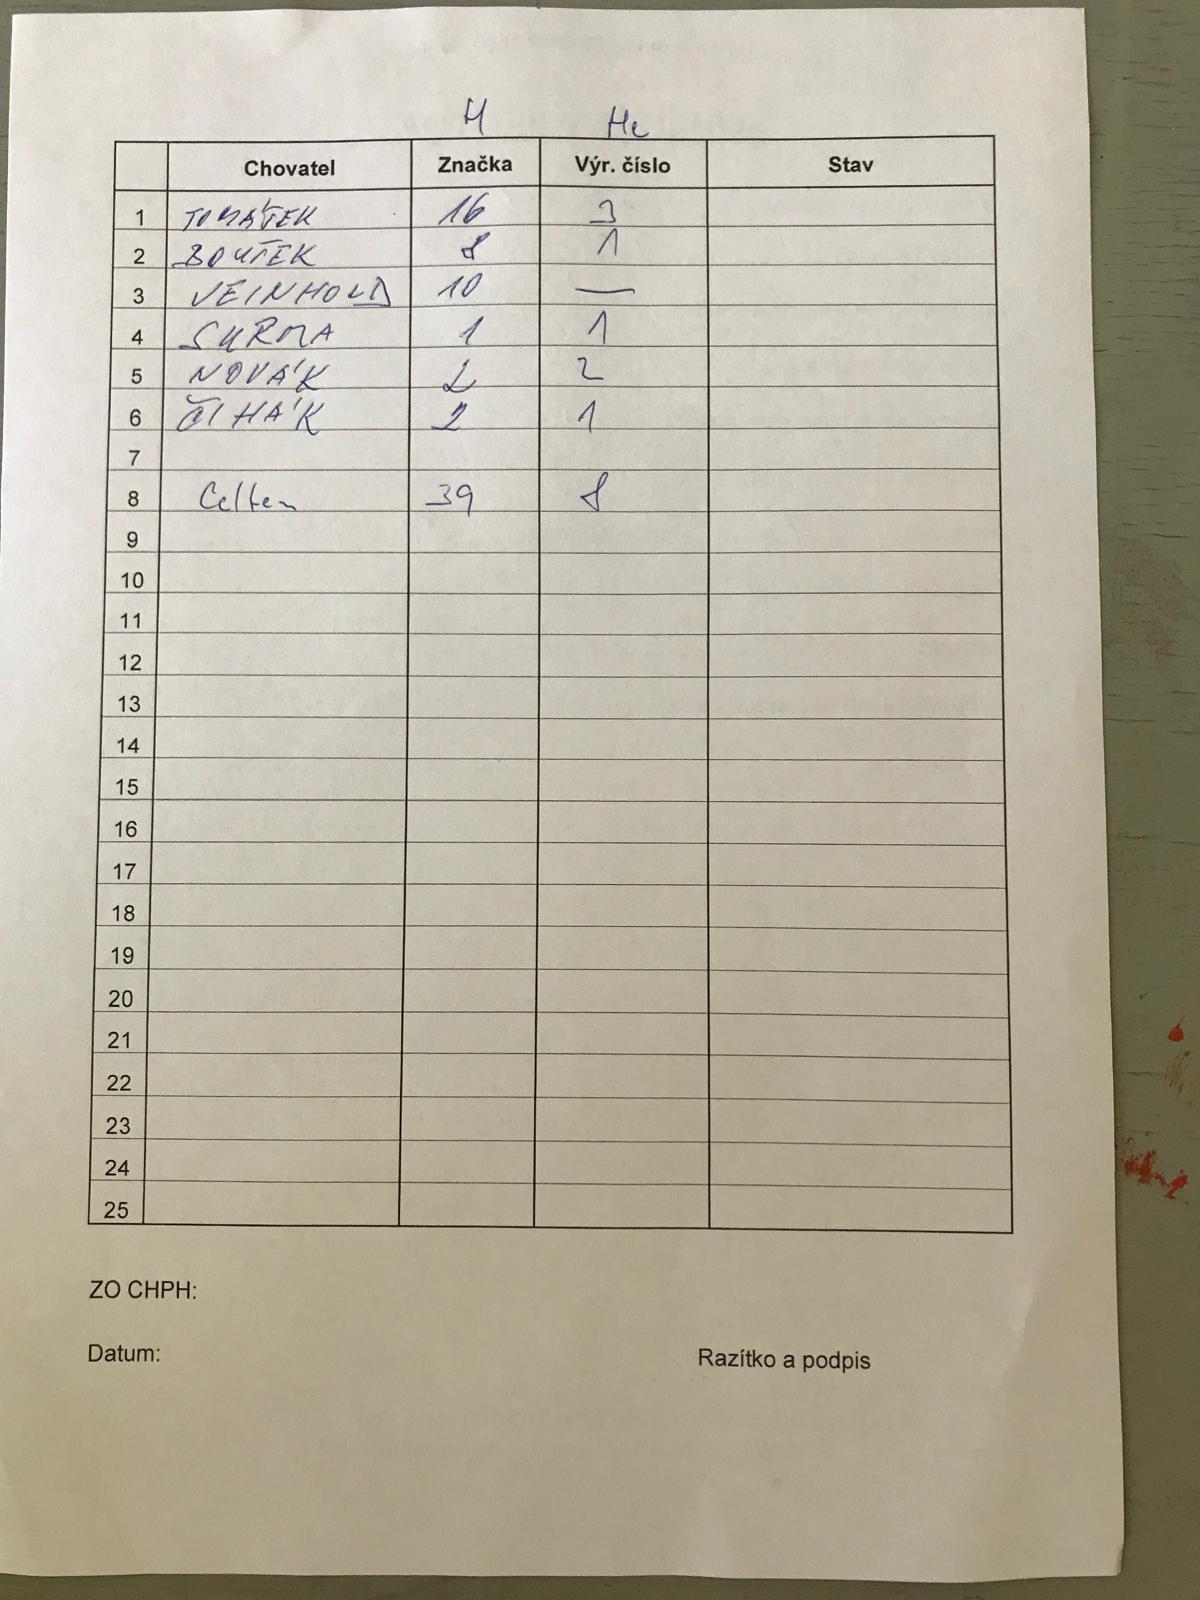 H He
Chovatel Značka Výr. číslo Stav
1 TOMÁŠEK 16 3
2 BOUŠEK 8 1
3 VEINHOLD 10 —
4 SURMA 1 1
5 NOVÁK 2 2
6 ČIHÁK 2 1
7
8 Celkem 39 8
9
10
11
12
13
14
15
16
17
18
19
20
21
22
23
24
25
ZO CHPH:
Datum: Razítko a podpis